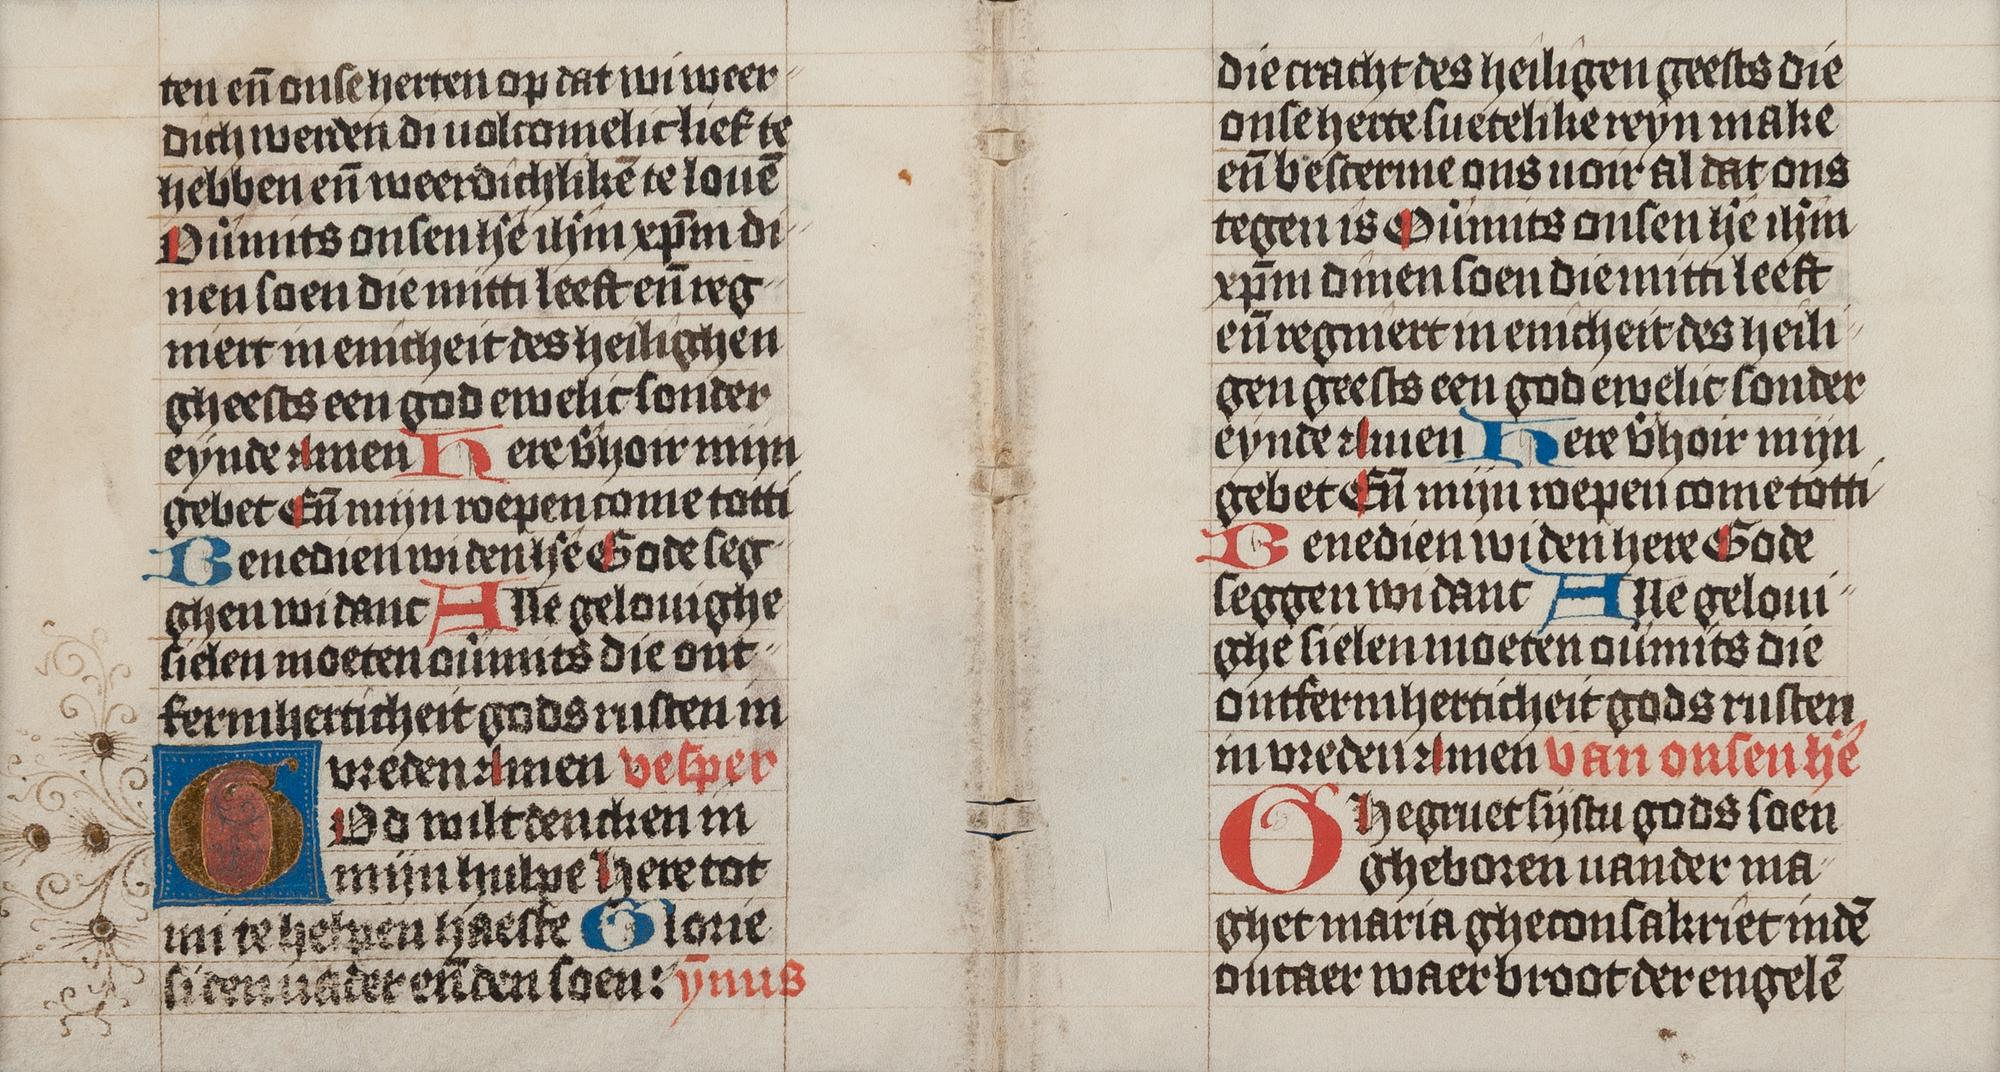 ten en̄ onse herten op dat wi weer
dich werden di uolcomelic lief te
hebben en̄ weerdichlikē te louē
Ouͥmits onsen hē ihm xp̄m di
nen soen die mitti leeft en̄ reg
niert in enicheit des heilighen
gheests een god ewelic sonder
eynde Amen Here v̄hoir mijn
gebet En̄ mijn roepen come totti
Benedien wi den hē Gode seg
ghen wi danc Alle gelouighe
sielen moeten ouͥmits die ont
fermherticheit gods rusten in
vreden Amen vesper
God wilt dencken in
mijn hulpe Here tot
mi te helpen haeste Glorie
si den uader en̄ den soen: ȳnus
die cracht des heiligen geests die
onse herte suetelike reyn make
en̄ bescerme ons uoir al dat ons
tegen is Ouͥmits onsen hē ihm
xp̄m dinen soen die mitti leeft
en̄ regniert in enicheit des heili
gen geests een god ewelic sonder
eynde Amen Here v̄hoir mijn
gebet En̄ mijn roepen come totti
Benedien wi den here Gode
seggen wi danc Alle geloui
ghe sielen moeten ouͥmits die
ontfermherticheit gods rusten
in vreden Amen van onsen hē
O Hegruet sijstu gods soen
gheboren uander ma
ghet maria gheconsakriet indē
outaer waer broot der engelē